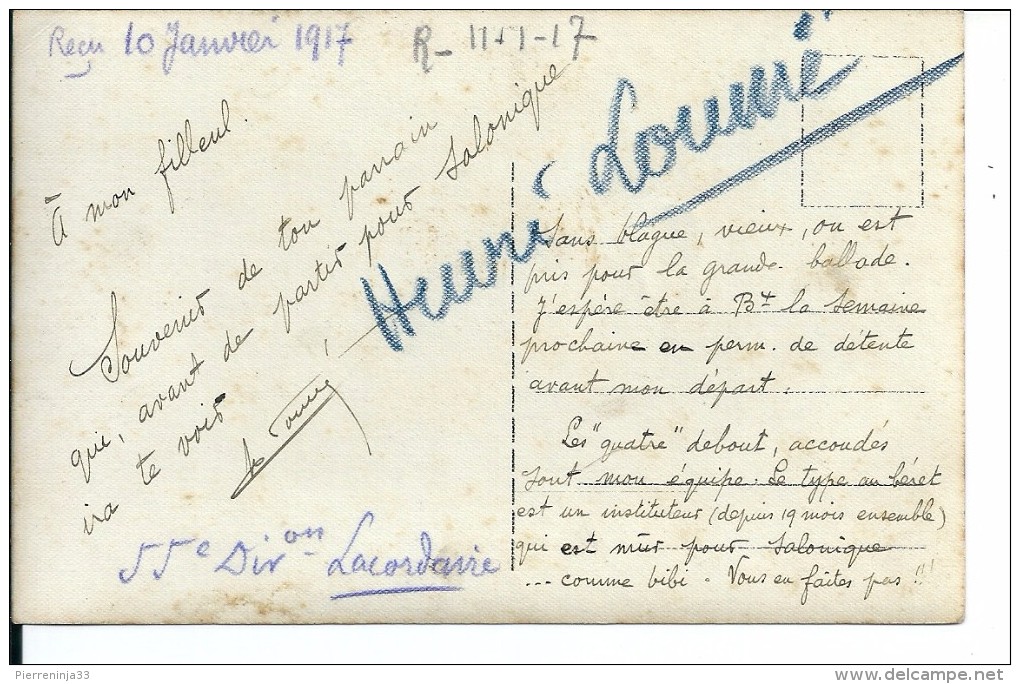 Reçu 10 Janvier 1917
R- 11-1-17
À mon filleul.
Souvenir de ton parrain
que, avant de partir pour Salonique
ira te voir
Henri
55e Divon Lacordaire
Sans blague, vieux, on est
pris pour la grande ballade.
J'espère être à Bx la semaine
prochaine en perm. de détente
avant mon départ.
Les "quatre" debout, accoudés
sont mon équipe. Le type au béret
est un instituteur (depuis 19 mois ensemble)
qui est mûr pour Salonique
... comme bibi. Vous en faites pas !!!
Pierreninja33
www.delcampe.net